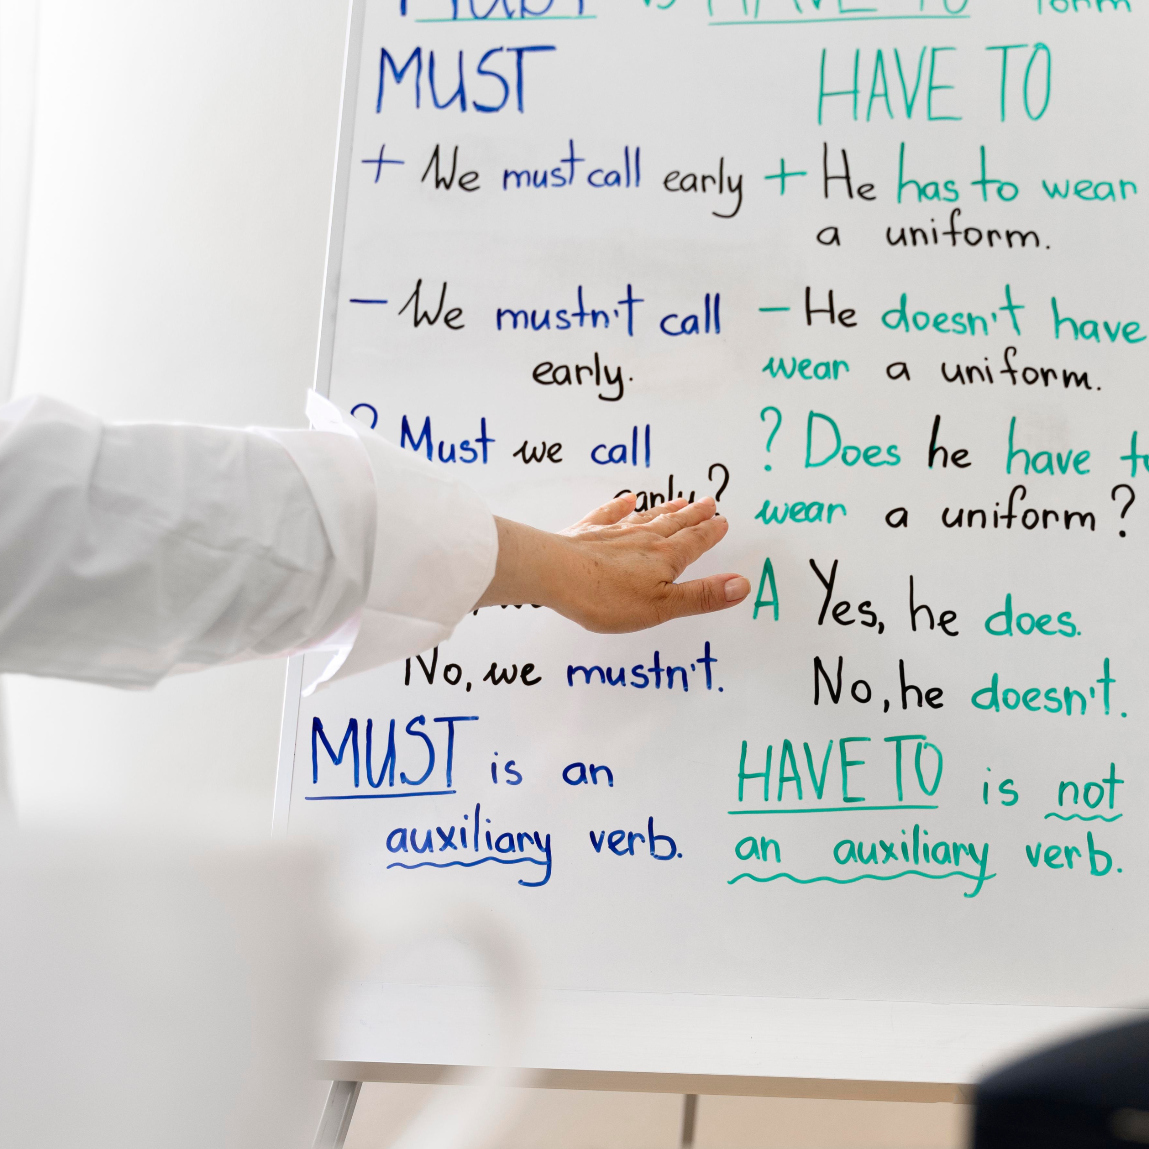 MUST vs HAVE TO form
MUST
+ We must call early
- We mustn't call
early.
? Must we call
early?
No, we mustn't.
MUST is an
auxiliary verb.
HAVE TO
+ He has to wear
a uniform.
- He doesn't have
wear a uniform.
? Does he have to
wear a uniform?
A Yes, he does.
No, he doesn't.
HAVE TO is not
an auxiliary verb.